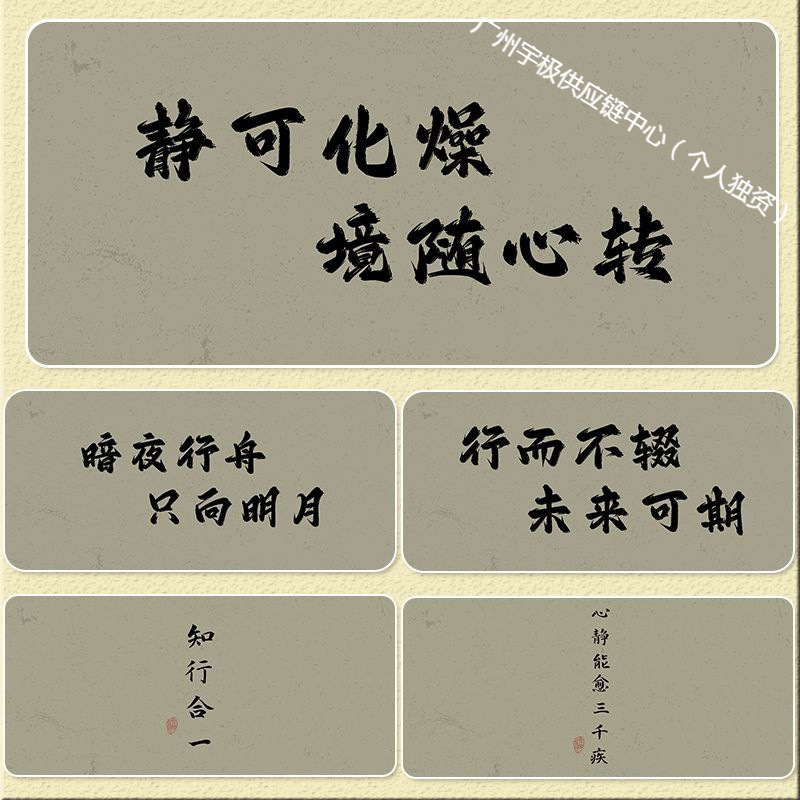 广州宇极供应链中心（个人独资）
静可化燥
境随心转
暗夜行舟
只向明月
行而不辍
未来可期
知行合一
心静能愈三千疾